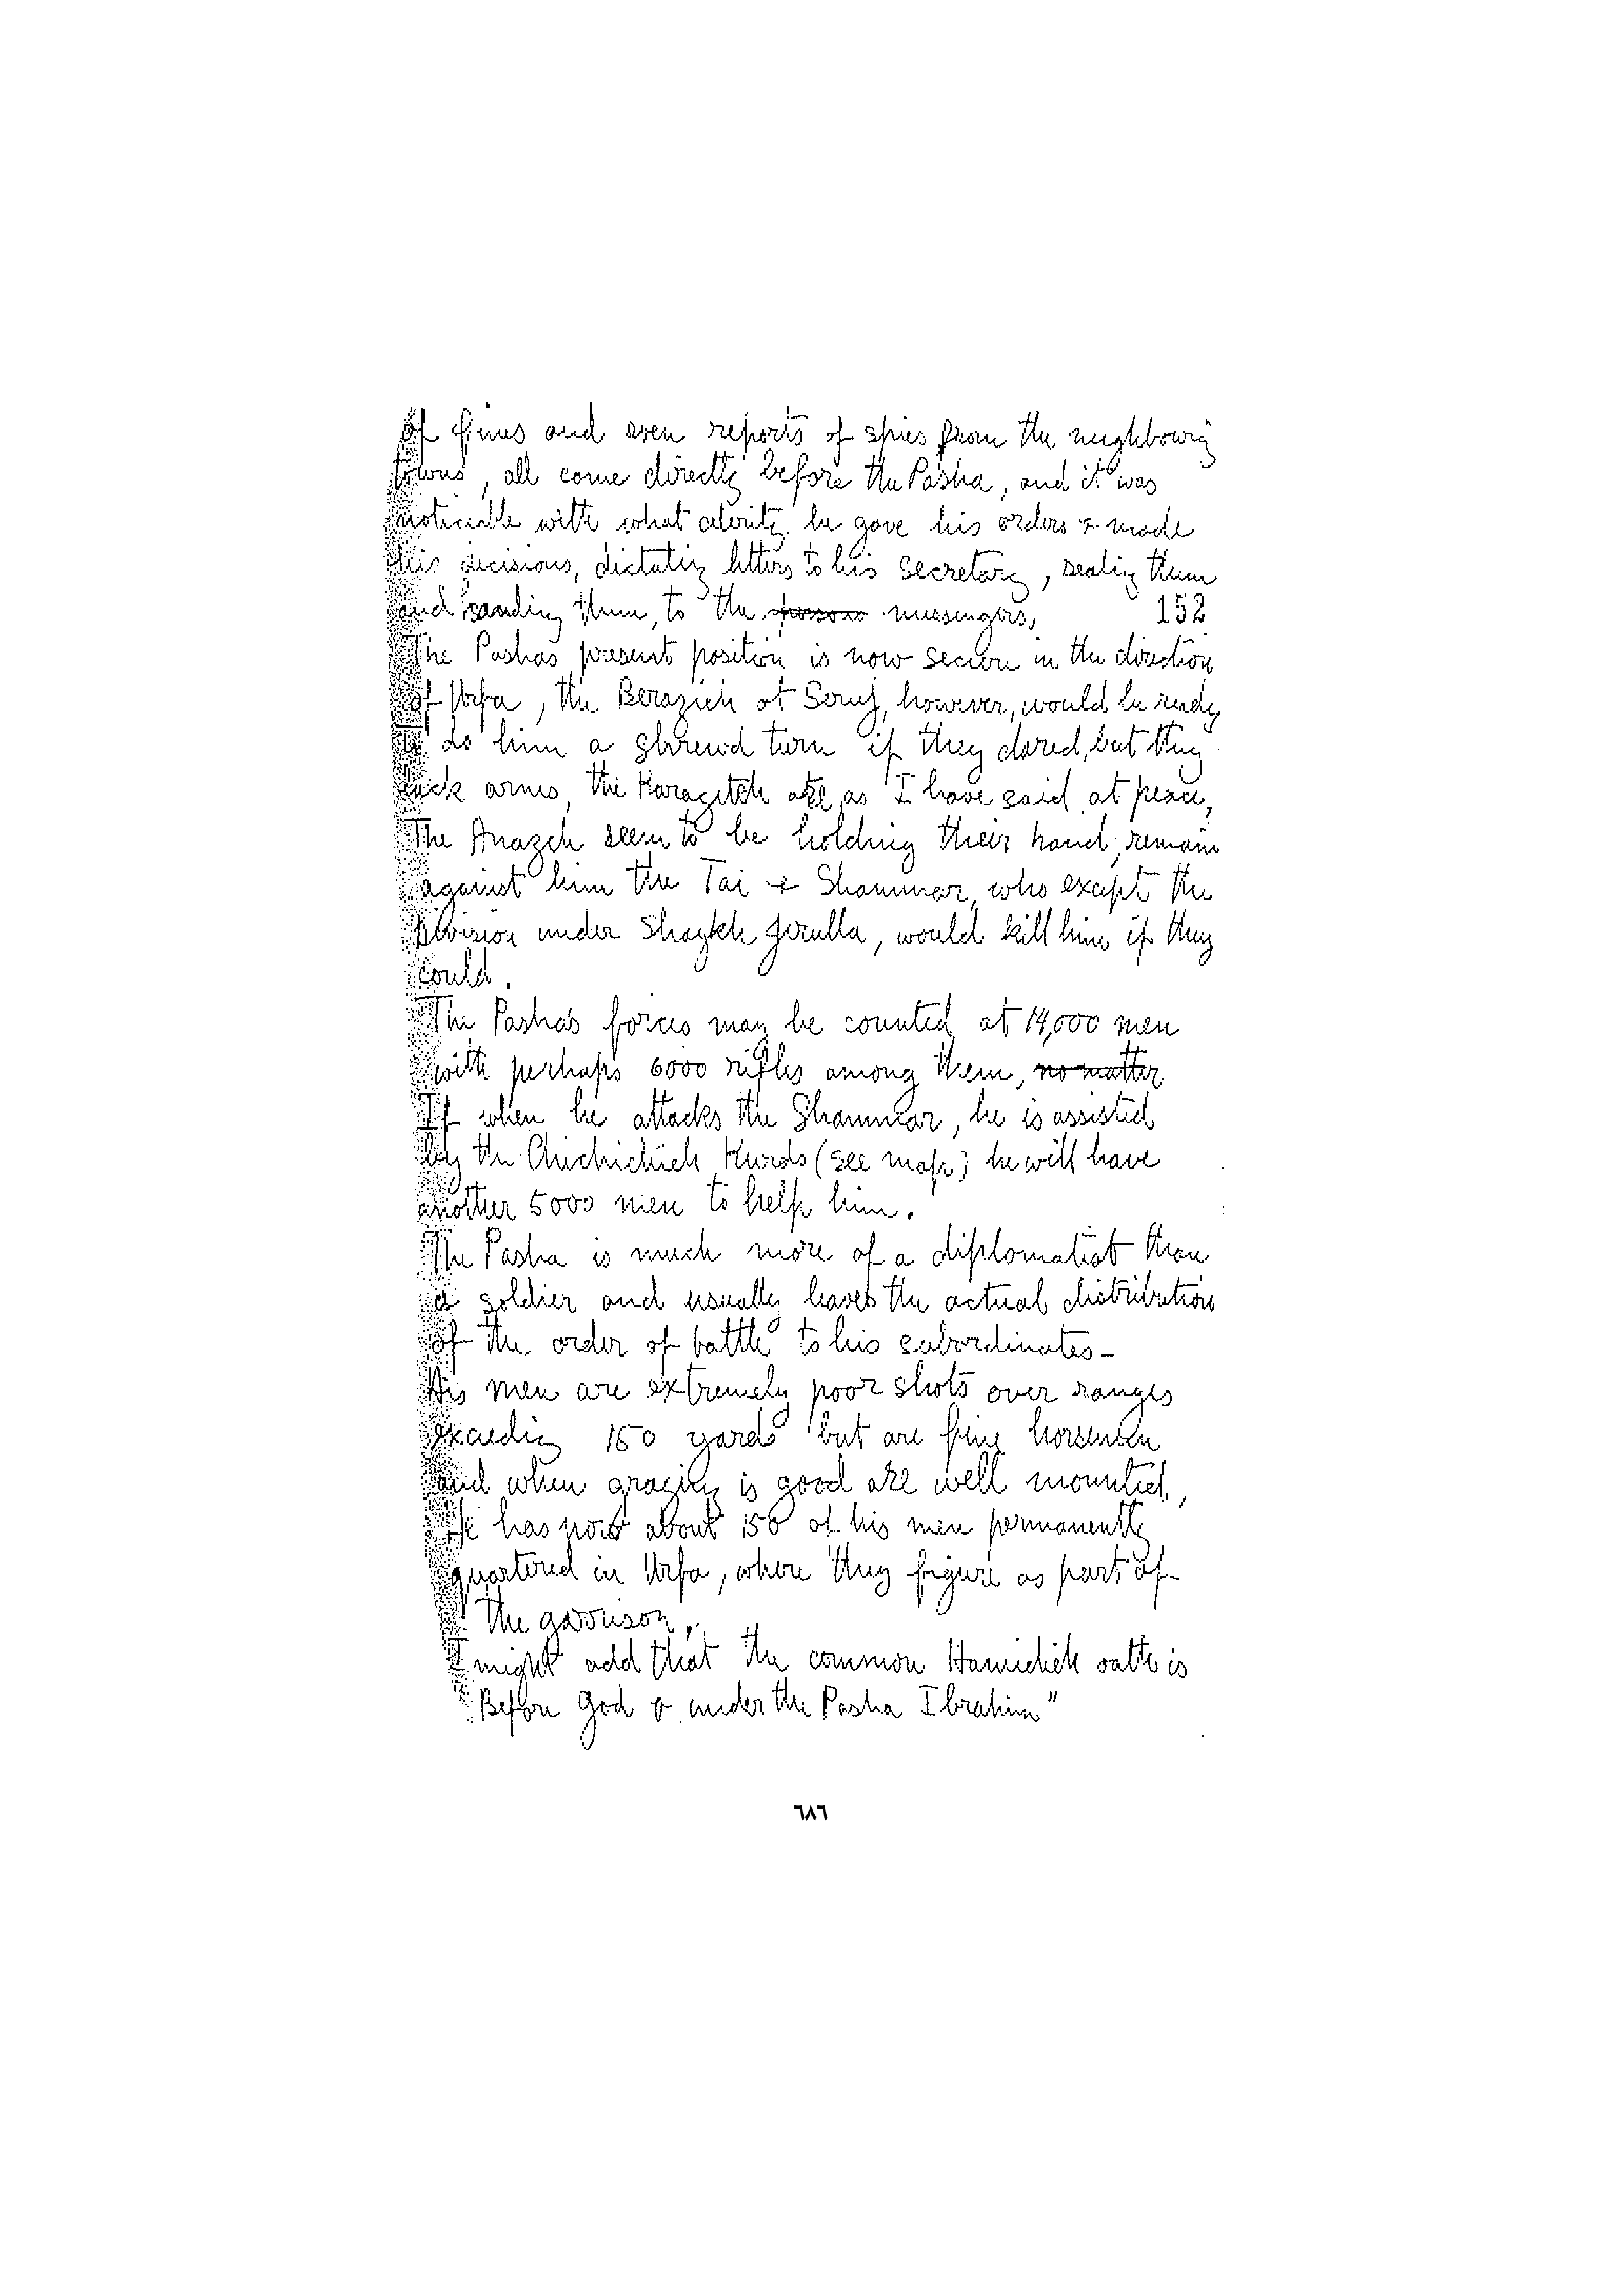 of fines and even reports of spies from the neighbouring
towns, all come directly before the Pasha, and it was
noticeable with what celerity he gave his orders & made
his decisions, dictating letters to his secretary, sealing them
and handing them, to the persons messengers, 152
The Pashas present position is now secure in the direction
of Urfa, the Berazieh at Seruj, however, would be ready
to do him a shrewd turn if they dared, but they
lack arms, the Karagitch are, as I have said at peace,
The Anazeh seem to be holding their hand; remain
against him the Tai & Shammar, who except the
Division under Shaykh Jirulla, would kill him if they
could.
The Pasha's forces may be counted at 14,000 men
with perhaps 6000 rifles among them, no matter
If when he attacks the Shammar, he is assisted
by the Chichichieh Kurds (see map) he will have
another 5000 men to help him.
The Pasha is much more of a diplomatist than
a soldier and usually leaves the actual distribution
of the order of battle to his subordinates-
His men are extremely poor shots over ranges
exceeding 150 yards but are fine horsemen
and when grazing is good are well mounted,
He has now about 150 of his men permanently
quartered in Urfa, where they figure as part of
the garrison,
I might add that the common Hamidieh oath is
"Before God & under the Pasha Ibrahim"
٦٨٦